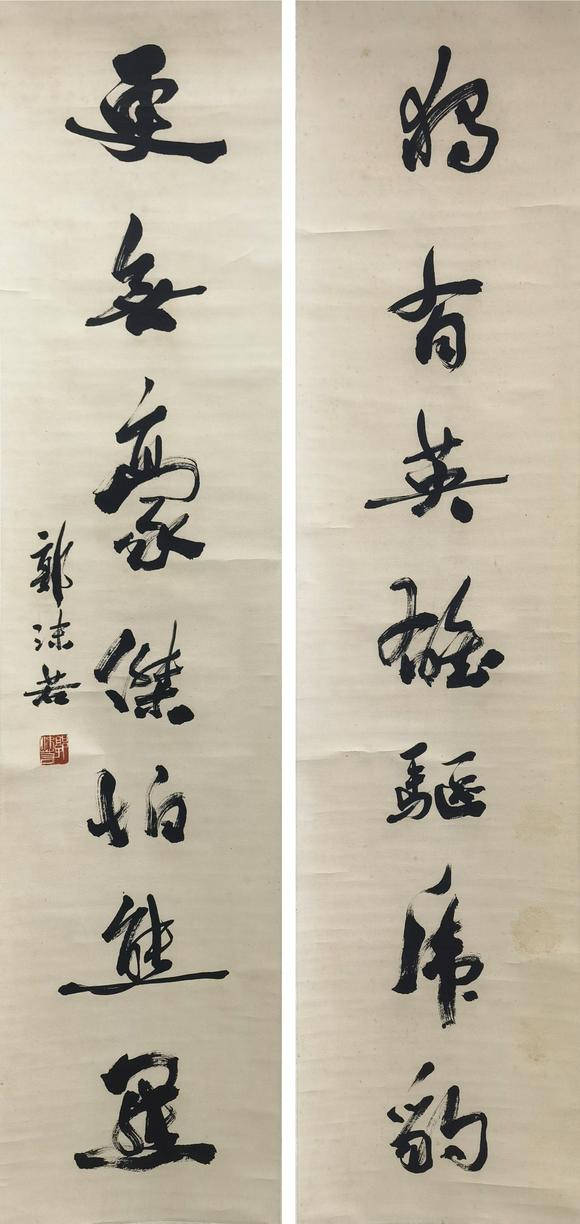 独有英雄驅虎豹
更無豪傑怕熊羆
郭沫若